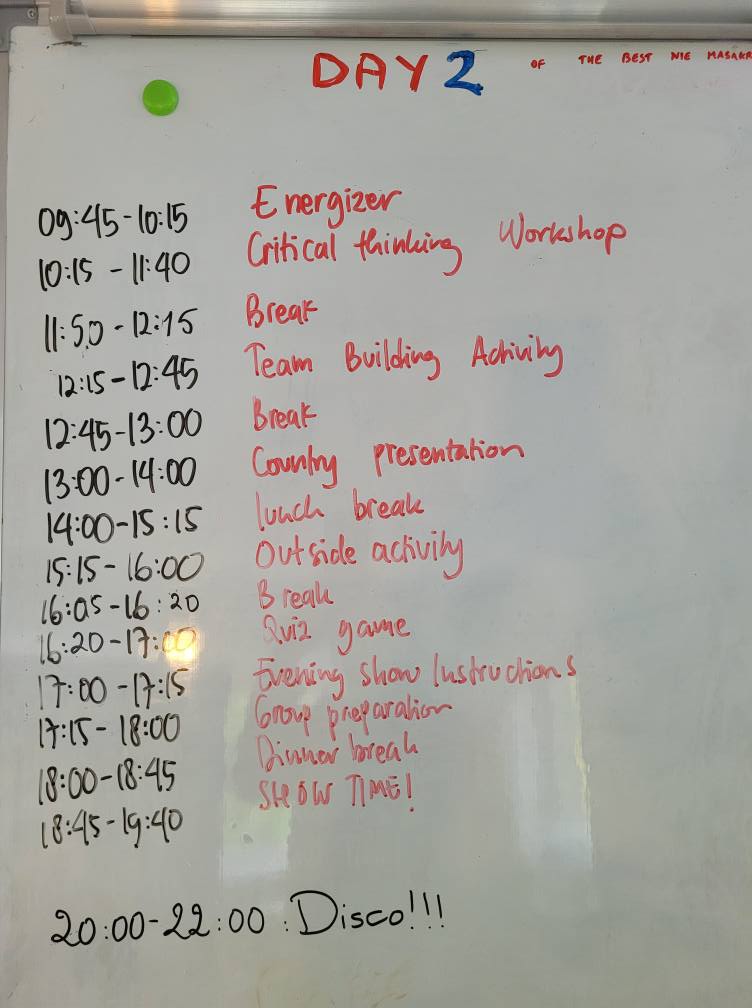 DAY 2 OF THE BEST NIE MASAKR
09:45-10:15 Energizer
10:15 - 11:40 Critical thinking Workshop
11:50 - 12:15 Break
12:15-12:45 Team Building Activity
12:45-13:00 Break
13:00-14:00 Country presentation
14:00-15:15 lunch break
15:15-16:00 Outside activity
16:05-16:20 Break
16:20-17:00 Quiz game
17:00-17:15 Evening show Instructions
17:15-18:00 Group preparation
18:00-18:45 Dinner break
18:45-19:40 SHOW TIME!
20:00-22:00 : Disco!!!